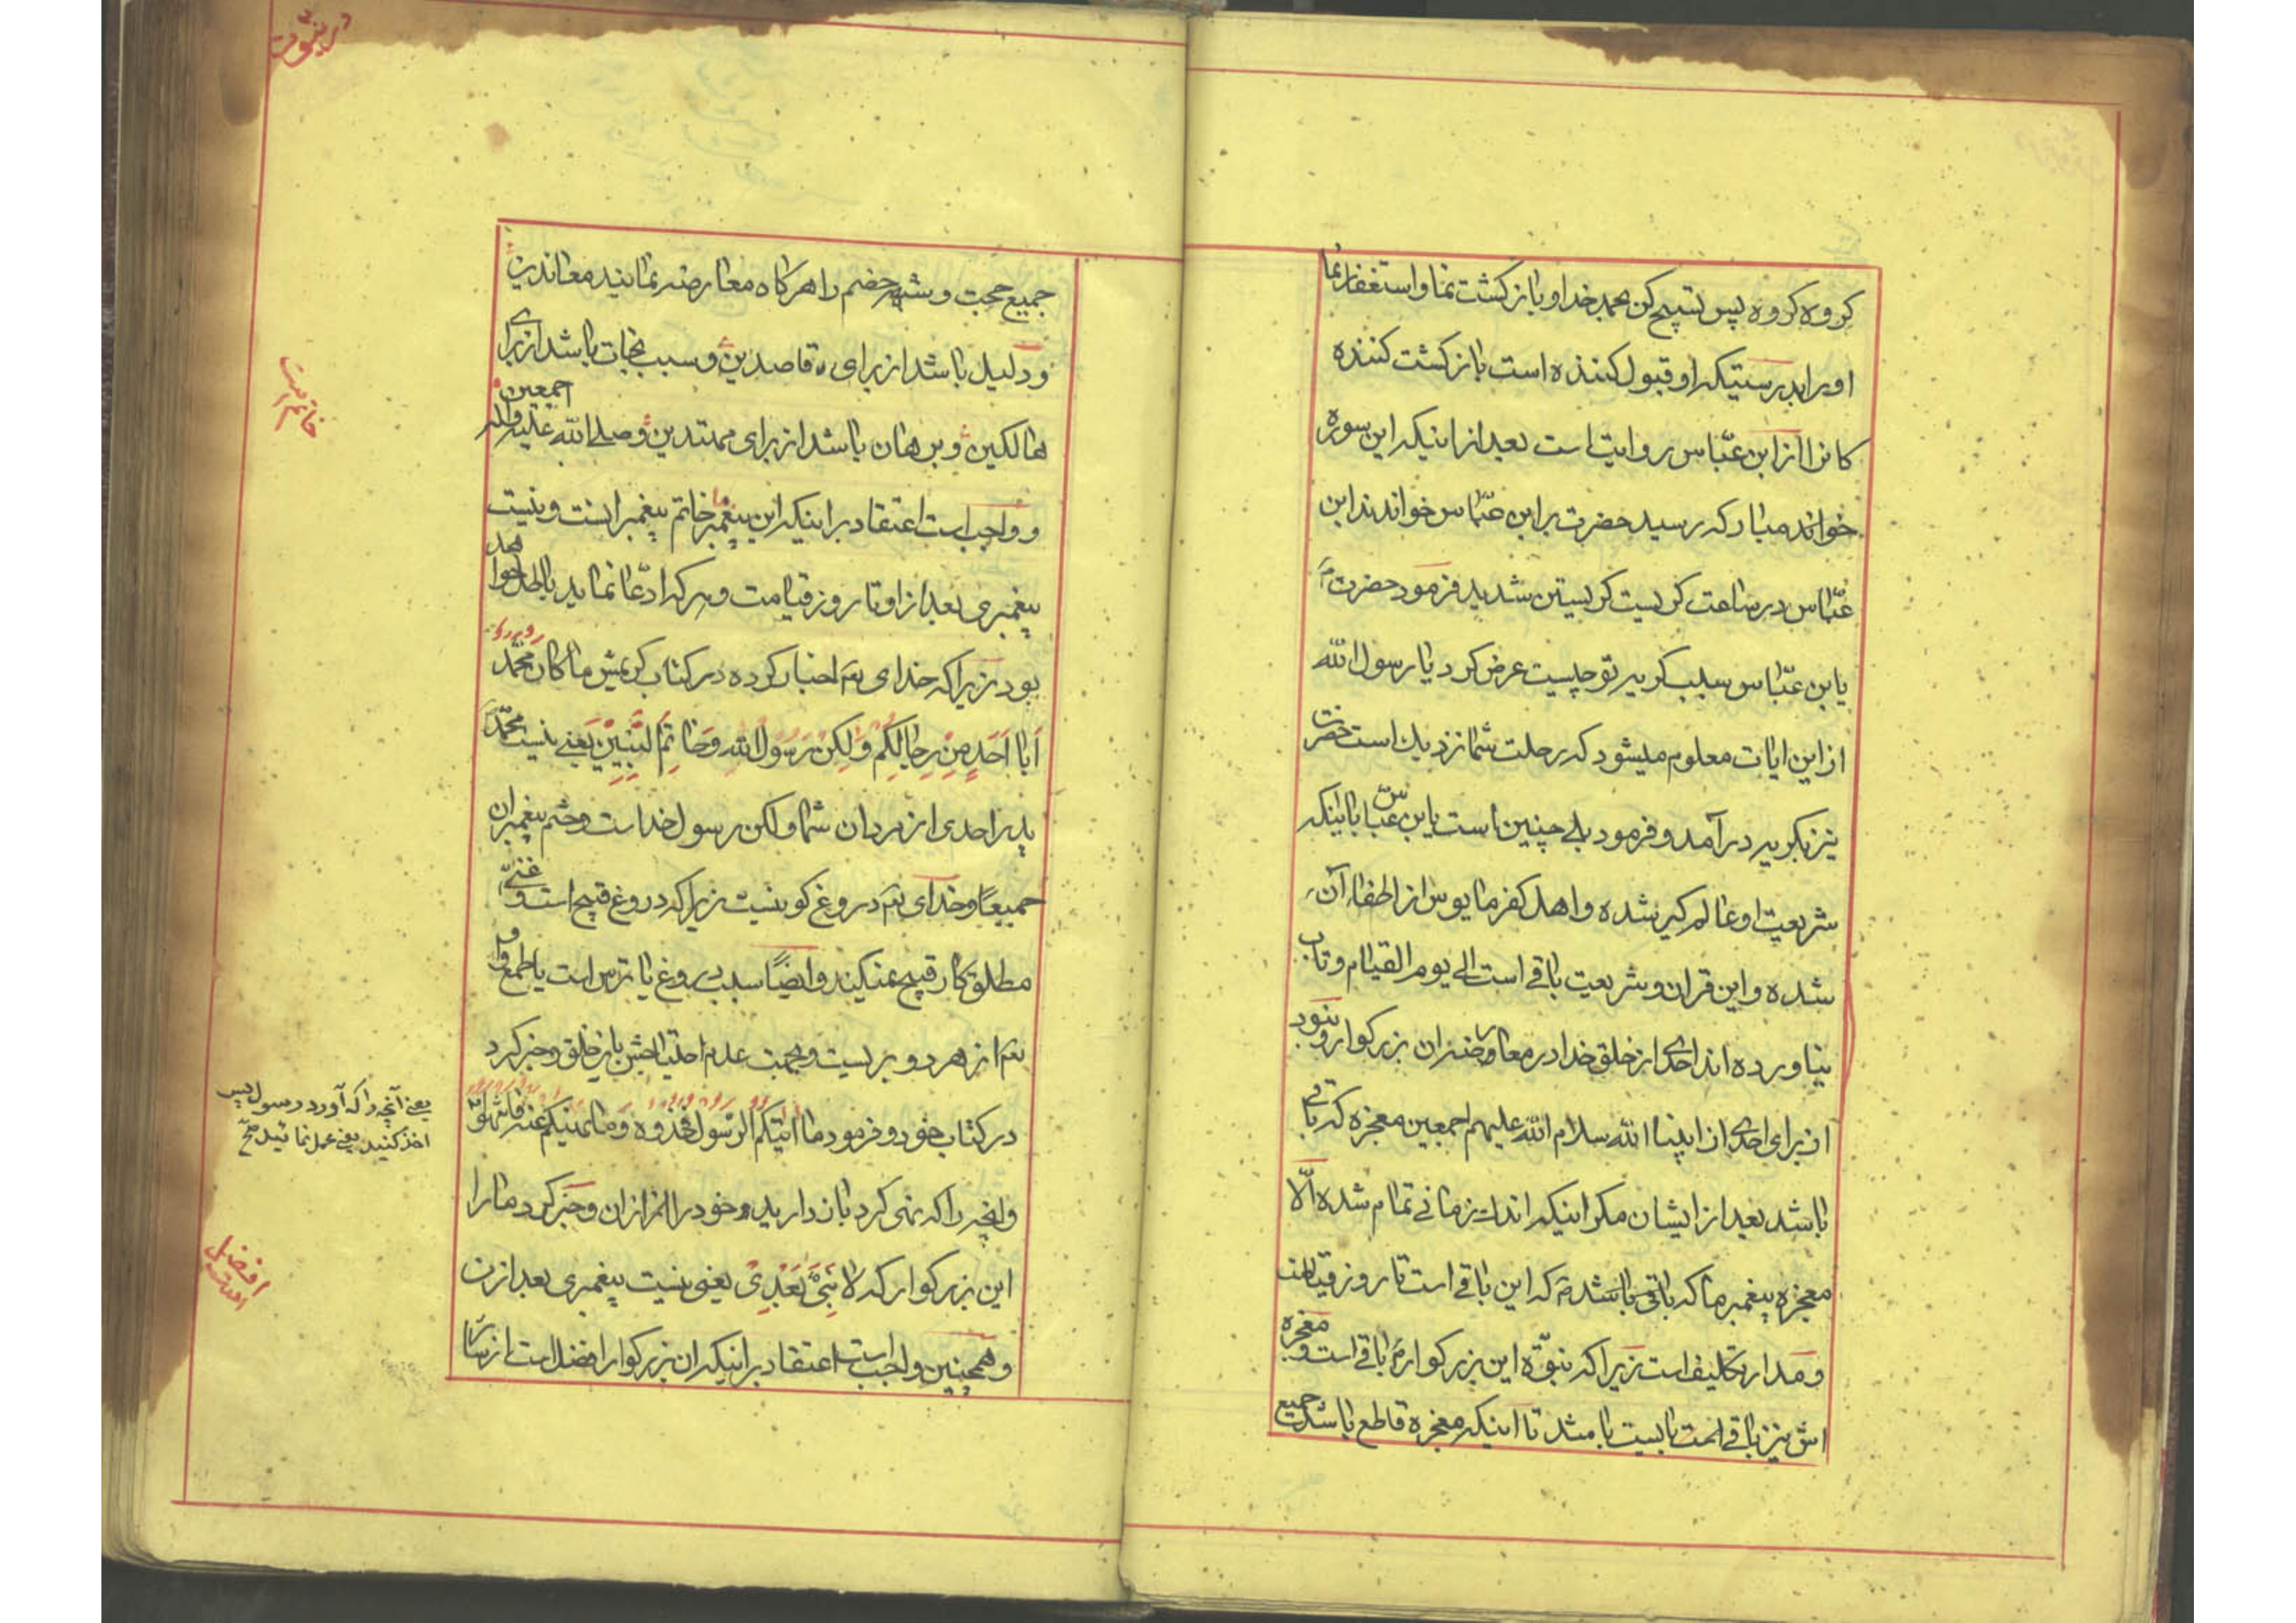 كروه كروه پس تسپيح كن بحمد خدا و بازكشت نما و استغفار نما
او را بدرستيكه او قبول كننده است بازكشت كننده
كانرا از ابن عبّاس روايت است بعد از اينكه اين سوره
خوانده مباركه رسيد حضرت بر ابن عبّاس خواندند ابن
عبّاس در ساعت كريست كريستن شديد فرمود حضرت
يا بن عبّاس سبب كريه تو چيست عرض كرد يا رسول الله
از اين ايات معلوم ميشود كه رحلت شما نزديك است حضرت
نيز بكريه درآمد و فرمود بلے چنين است يا بن عبّاس با اينكه
شريعت او عالم كير شده و اهل كفر مايوس از اطفاء آن
شده و اين قران و شريعت باقے است الے يوم القيام و تاب
نياورده اند احدى از خلق خدا در معارضه ان بزركوار و نبود
از براى احدى از انبياء الله سلام الله عليهم اجمعين معجزه كه باقے
باشد بعد از ايشان مكر اينكه اندك زمانے تمام شده الّا
معجزه پيغمبر ما كه باقى باشد كه اين باقے است تا روز قيامت
و مدار تكليف است زيرا كه نبوّة اين بزركوار باقے است و معجزه
اش نيز باقے است بايست باشد تا اينكه معجزه قاطع باشد جميع
در نبوت
جميع حجت و شبهه خصم را هركاه معارضه نمايند معاندين
و دليل باشد از براى قاصدين و سبب نجات باشد از براى
هالكين و برهان باشد از براى مهتدين و صلے الله عليه و اله اجمعين
و واجب است اعتقاد بر اينكه اين پيغمبر ما خاتم پيغمبرانست و نيست
پيغمبرى بعد از او تا روز قيامت و هر كه ادّعا نمايد باطل خواهد
بود زيرا كه خداى تعه اخبار كرده در كتاب كريمش ما كان محمّد
اَبا اَحَدٍ مِنْ رِجالِكُم وَلكِنْ رَسُولَ اللهِ وَخاتَمَ النَّبِيّينَ يعنے نيست محمّد
پدر احدى از مردان شما و لكن رسول خداست و ختم پيغمبران
جميعًا و خداى تعه دروغ كو نيست زيرا كه دروغ قبيح است و غنے
مطلق كار قبيح نميكند و ايضًا سبب دروغ يا ترس است يا طمع و او
تعه از هر دو بريست و بجهت عدم احتياجش باين خلق و خبر كرد
در كتاب خود و فرمود ما اتيكم الرّسول فخذوه وَما نهيكم عنه فانتهوا
و انچه را كه نهى كرد باز داريد خود را از ان و خبر كرد ما را
اين بزركوار كه لا نَبِىَّ بَعْدِىْ يعنى نيست پيغمبرى بعد از من
و همچنين واجب است اعتقاد بر اينكه ان بزركوار افضل است از ساير
خاتميت
يعنے آنچه را كه آورد رسول پس
اخذ كنيد يعنے عمل نمائيد صح
افضل
امت